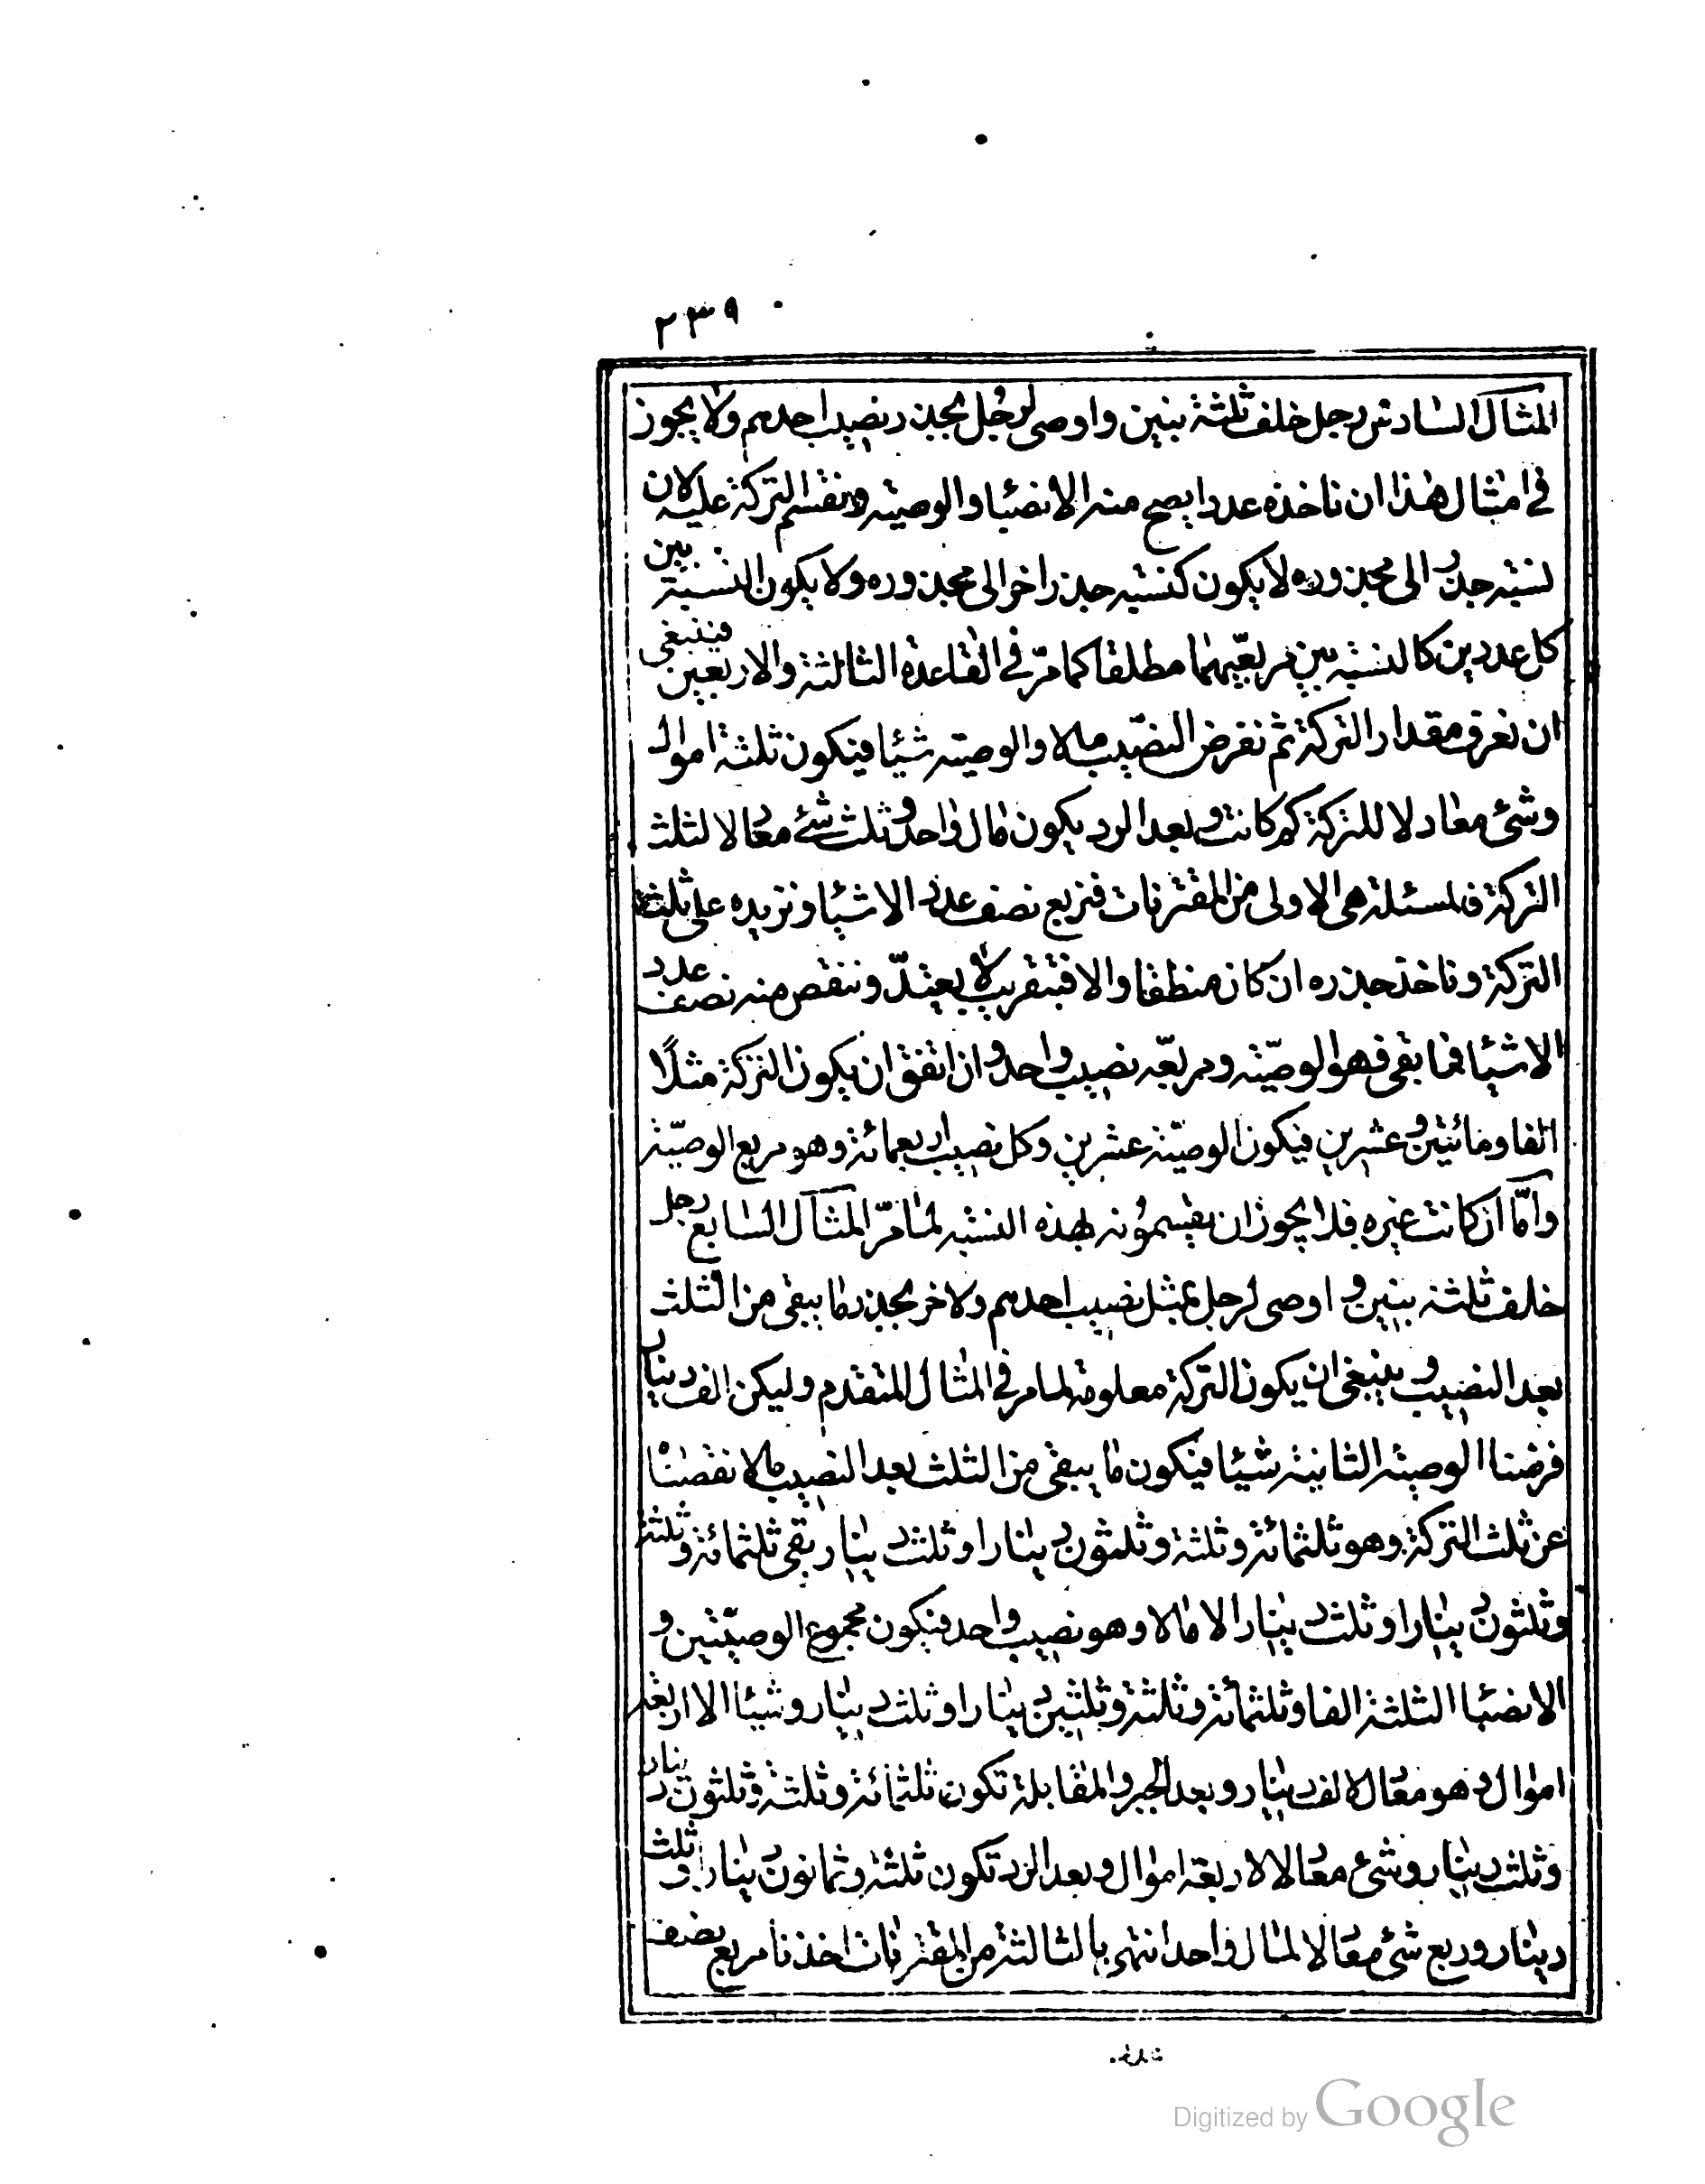 ٢٣٩
المثال السادس رجل خلف ثلثة بنين واوصى لرجل بجذر نصيب احدهم ولا يجوز
فى امثال هذا ان ناخذه عددا يصح منه الانصبا والوصية ونقسم التركة عليه لان
نسبة جذر الى مجذوره لا يكون كنسبة جذر اخر الى مجذوره ولا يكون النسبة بين
كل عددين كالنسبة بين مربعيهما مطلقا كما مرّ فى القاعدة الثالثة والاربعين فينبغى
ان نعرف مقدار التركة ثم نفرض النصيب مالا والوصية شيئا فيكون ثلثة اموال
وشئ معادلا للتركة كم كانت وبعد الرد يكون مال واحد وثلث شئ معادلا لثلث
التركة فالمسئلة هى الاولى من المقترنات فنربع نصف عدد الاشيا ونزيده على ثلث
التركة وناخذ جذره ان كان منطقا والا فبتقريب لا يعتدّ وننقص منه نصف عدد
الاشيا فما بقى فهو الوصيّة ومربعه نصيب واحد وان اتفق ان يكون التركة مثلًا
الفا ومائتين وعشرين فيكون الوصيّة عشرين وكل نصيب اربعمائة وهو مربع الوصيّة
وامّا ان كانت غيره فلا يجوز ان يقسمونه بهذه النسبه لما مرّ المثال السابع رجل
خلف ثلثة بنين و اوصى لرجل بمثل نصيب احدهم ولاخر بجذر ما يبقى من الثلث
بعد النصيب و ينبغى ان يكون التركة معلومة لما مر فى المثال المتقدم وليكن الف دينار
فرضنا الوصية الثانية شيئا فيكون ما يبقى من الثلث بعد النصيب مالا نقصناه
عن ثلث التركة وهو ثلثمائة وثلثة وثلثون دينارا وثلث دينار بقى ثلثمائة وثلثة
وثلثون دينارا وثلث دينار الا مالا وهو نصيب واحد فيكون مجموع الوصيّتين و
الانصبا الثلثة الفا وثلثمائة وثلثة وثلثين دينارا وثلث دينار وشيئا الا اربعة
اموال وهو معادل لالف دينار وبعد الجبر والمقابلة تكون ثلثمائة وثلثة وثلثون دينار
وثلث دينار وشئ معادلا لاربعة اموال وبعد الرد تكون ثلثة وثمانون دينارا وثلث
دينار وربع شئ معادلا لمال واحد انتهى بالثالثة من المقترنات اخذنا مربع نصف
Digitized by Google